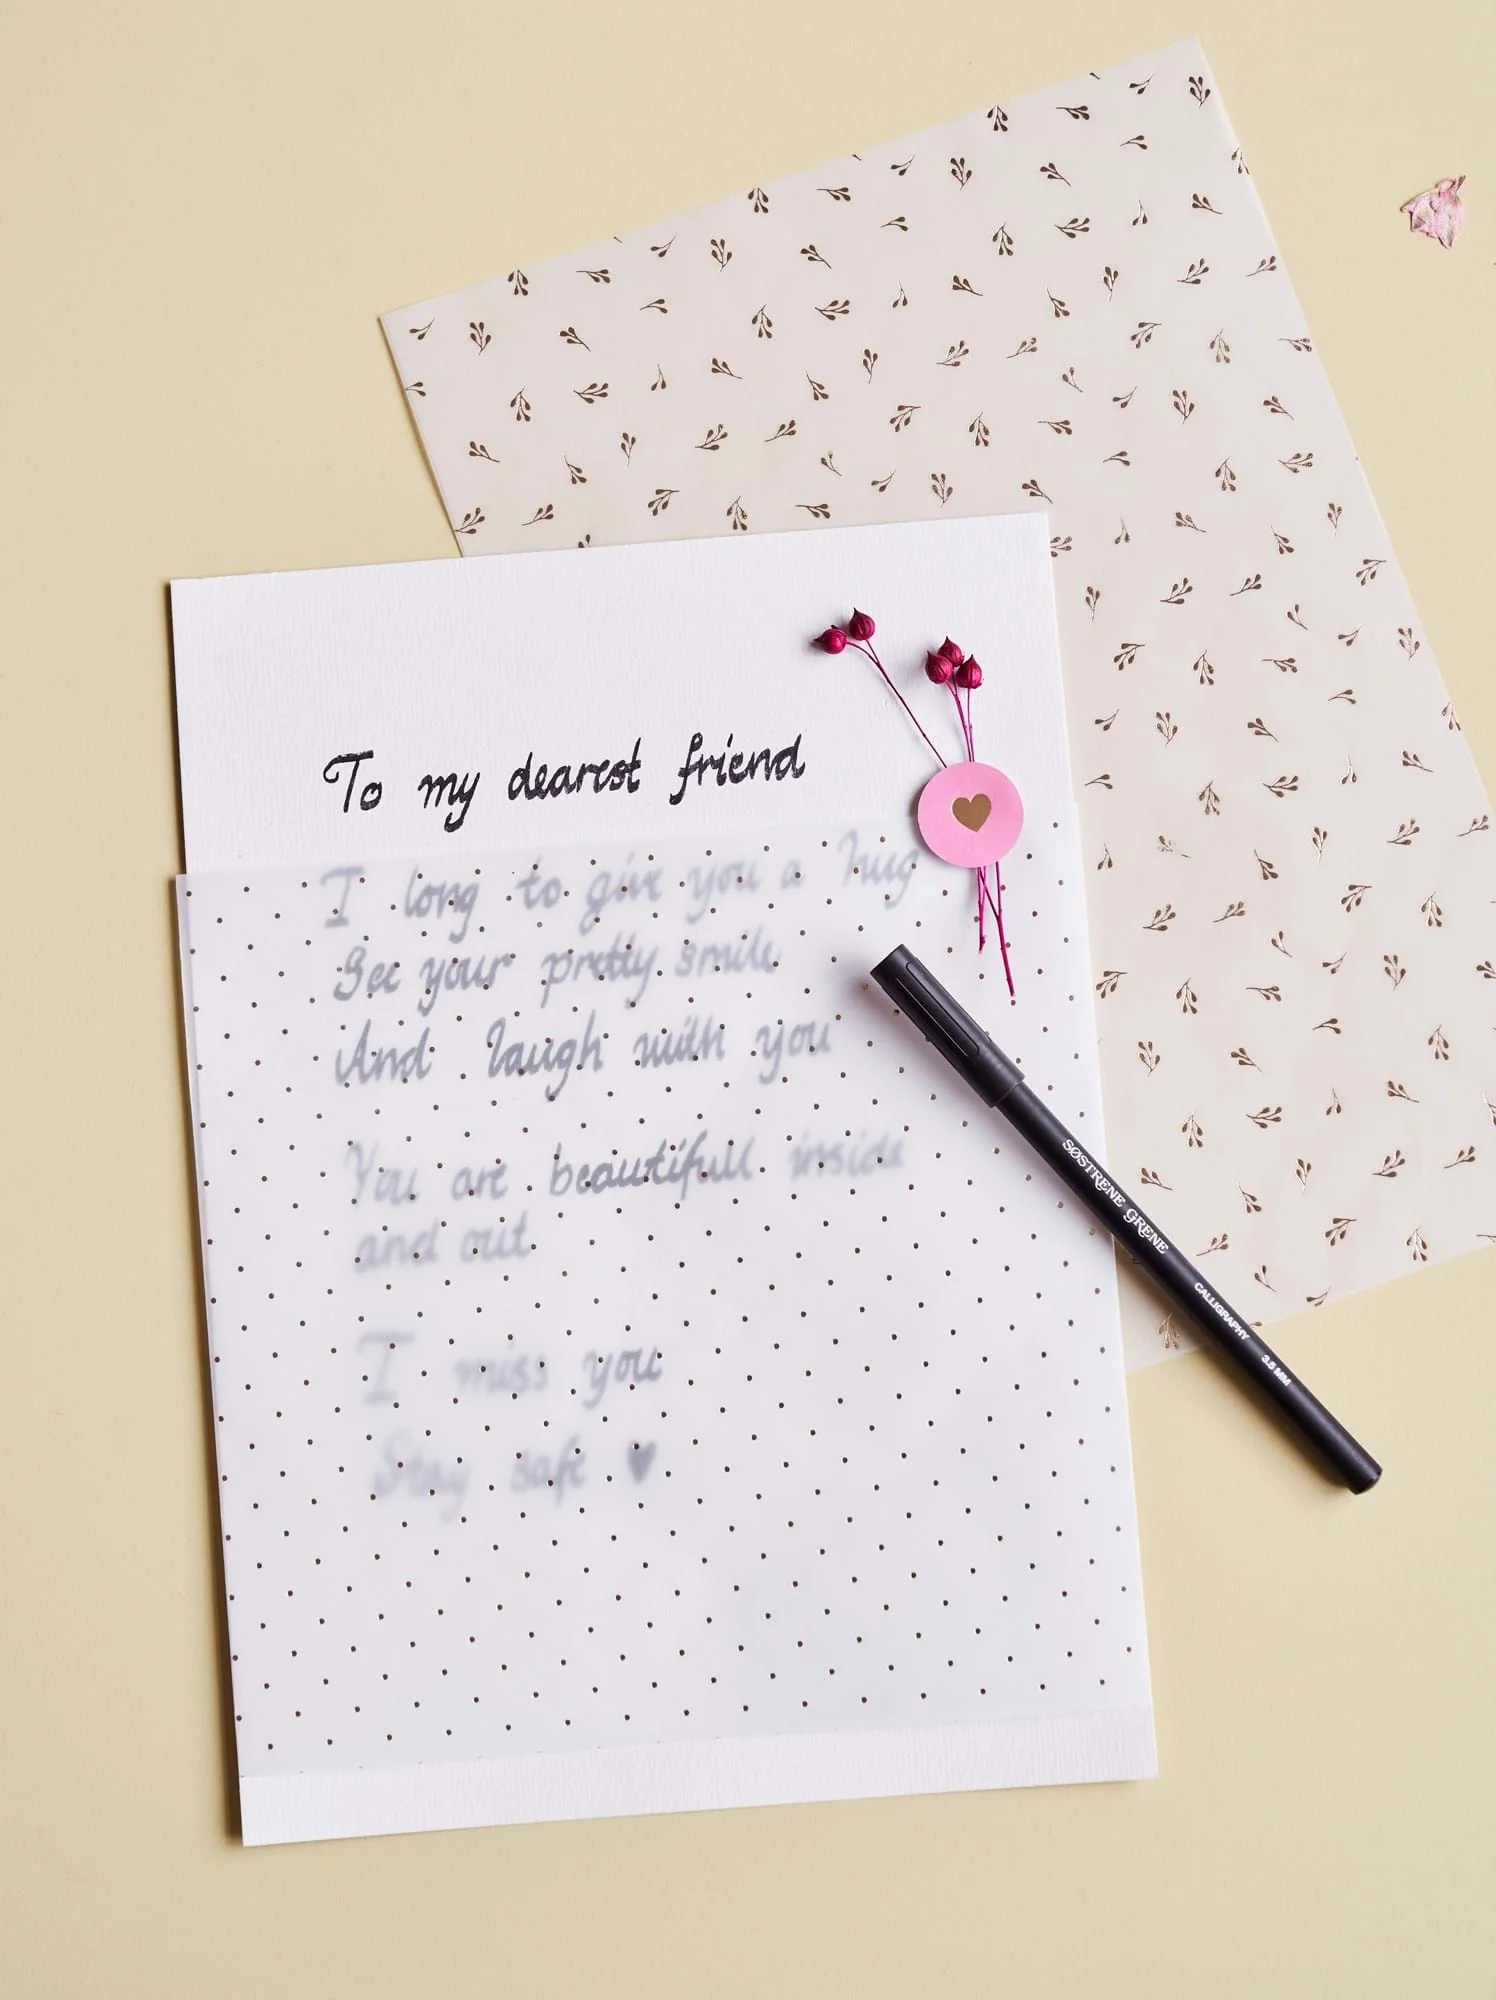 To my dearest friend
I long to give you a hug
See your pretty smile
And laugh with you
You are beautifull inside
and out
I miss you
Stay safe ♥
SØSTRENE GRENE CALLIGRAPHY 3.5 MM